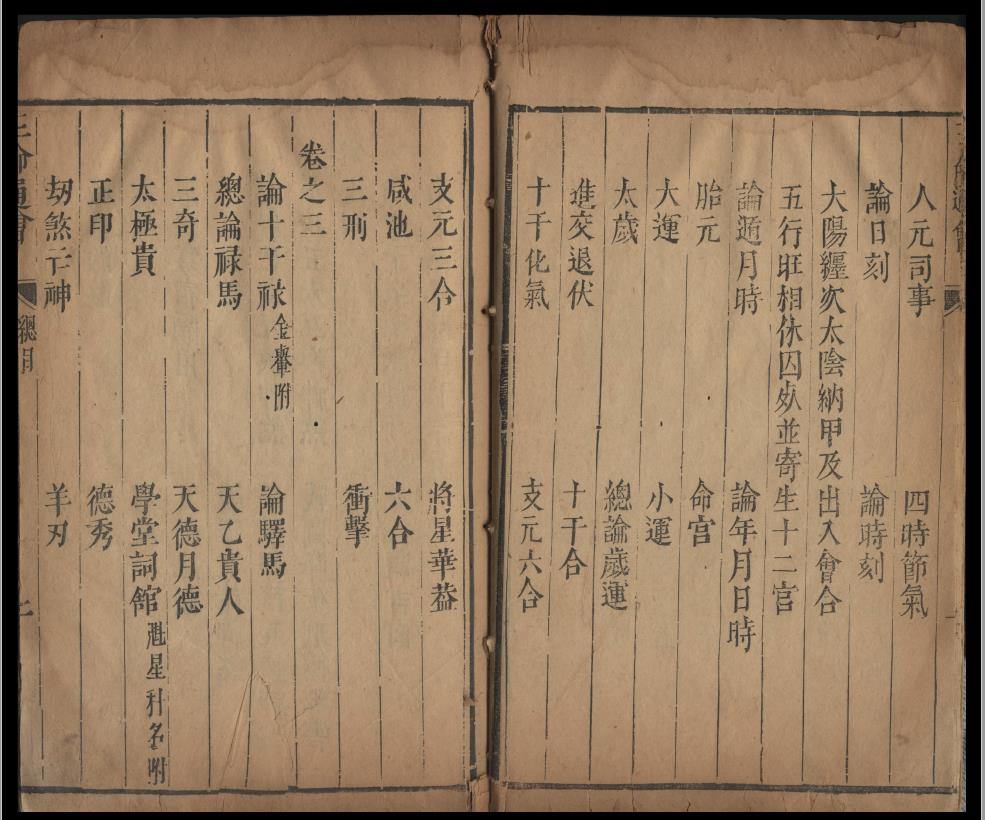 人元司事 四時節氣
論日刻 論時刻
大陽纏次太陰納甲及出入會合
五行旺相休囚死並寄生十二宮
論遁月時 論年月日時
胎元 命宮
大運 小運
太歲 總論歲運
進交退伏 十干合
十干化氣 支元六合
支元三合 將星華葢
咸池 六合
三刑 衝擊
卷之三
論十干祿金轝附 論驛馬
總論禄馬 天乙貴人
三奇 天德月德
太極貴 學堂詞館魁星科名附
正印 德秀
刼煞亡神 羊刃
三命通會 總目